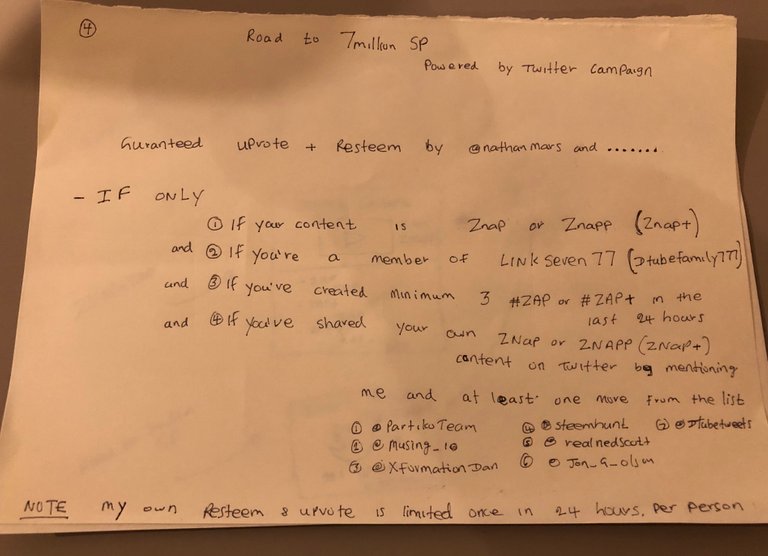 ④
Road to 7million SP
Powered by Twitter Campaign
Guranteed upvote + Resteem by @nathanmars and .......
- IF ONLY
① If your content is Znap or Znapp (Znap+)
and ② If you're a member of LINK Seven 77 (Dtubefamily777)
and ③ If you've created minimum 3 #ZAP or #ZAP+ in the
last 24 hours
and ④ If you've shared your own ZNap or ZNAPP (ZNap+)
content on Twitter by mentioning
me and at least one more from the list
① @PartikoTeam ④ @steemhunt ⑦ @Dtubetweets
② @Musing_io ⑤ @realnedscott
③ @XformationDan ⑥ @Jon_G_olson
NOTE my own Resteem & upvote is limited once in 24 hours. Per person